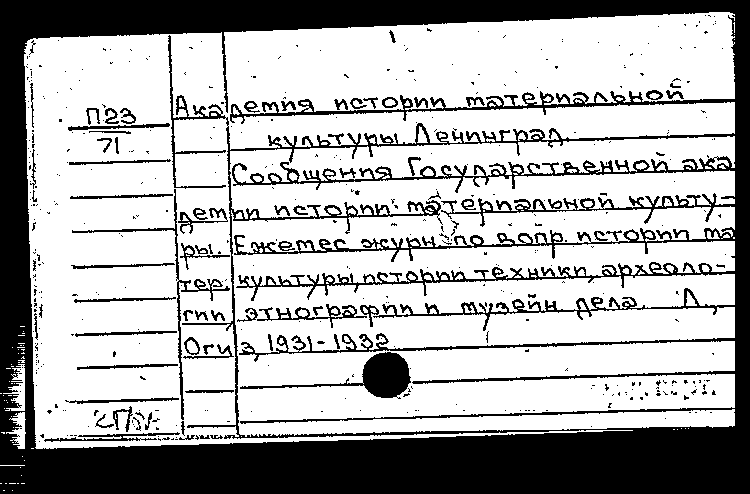 П23
71
Академия истории материальной
культуры. Ленинград.
Сообщения Государственной ака
демии истории материальной культу-
ры. Ежемес журн. по вопр. истории ма
тер. культуры, истории техники, археоло-
гии, этнографии и музейн дела. Л.,
Огиз, 1931-1932